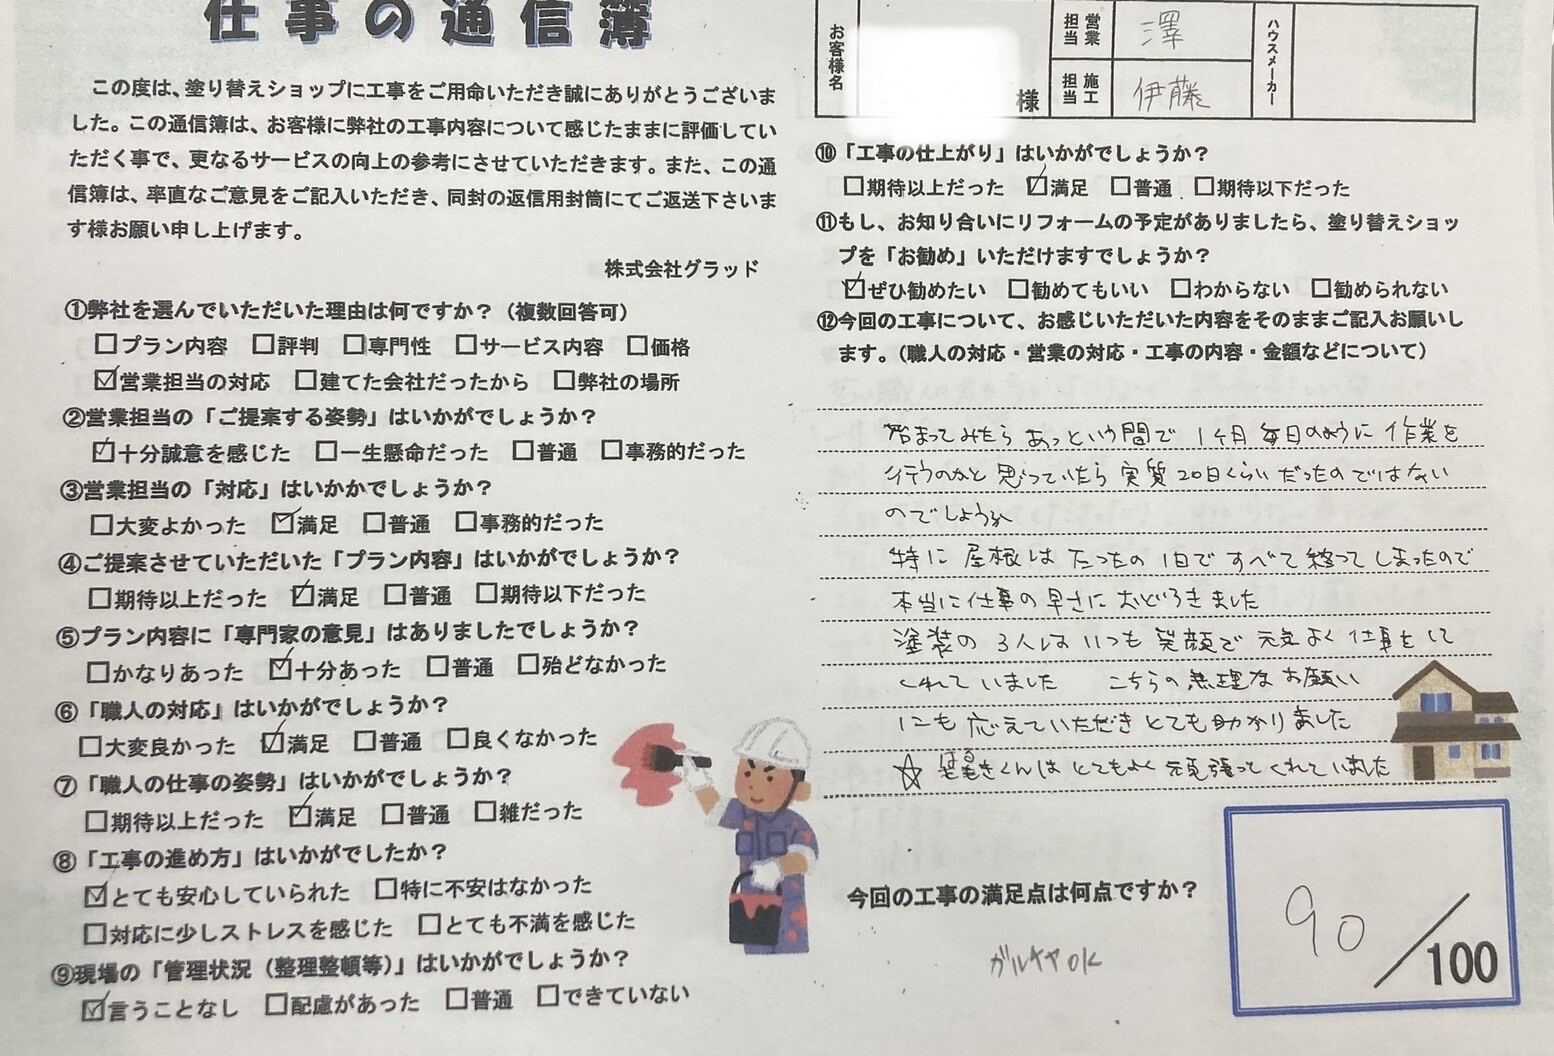 仕事の通信簿
この度は、塗り替えショップに工事をご用命いただき誠にありがとうございま
した。この通信簿は、お客様に弊社の工事内容について感じたままに評価してい
ただく事で、更なるサービスの向上の参考にさせていただきます。また、この通
信簿は、率直なご意見をご記入いただき、同封の返信用封筒にてご返送下さいま
す様お願い申し上げます。
株式会社グラッド
①弊社を選んでいただいた理由は何ですか？（複数回答可）
□プラン内容 □評判 □専門性 □サービス内容 □価格
☑営業担当の対応 □建てた会社だったから □弊社の場所
②営業担当の「ご提案する姿勢」はいかがでしょうか？
☑十分誠意を感じた □一生懸命だった □普通 □事務的だった
③営業担当の「対応」はいかかでしょうか？
□大変よかった ☑満足 □普通 □事務的だった
④ご提案させていただいた「プラン内容」はいかがでしょうか？
□期待以上だった ☑満足 □普通 □期待以下だった
⑤プラン内容に「専門家の意見」はありましたでしょうか？
□かなりあった ☑十分あった □普通 □殆どなかった
⑥「職人の対応」はいかがでしょうか？
□大変良かった ☑満足 □普通 □良くなかった
⑦「職人の仕事の姿勢」はいかがでしょうか？
□期待以上だった ☑満足 □普通 □雑だった
⑧「工事の進め方」はいかがでしたか？
☑とても安心していられた □特に不安はなかった
□対応に少しストレスを感じた □とても不満を感じた
⑨現場の「管理状況（整理整頓等）」はいかがでしょうか？
☑言うことなし □配慮があった □普通 □できていない
お客様名 様 営業担当 澤 ハウスメーカー
施工担当 伊藤
⑩「工事の仕上がり」はいかがでしょうか？
□期待以上だった ☑満足 □普通 □期待以下だった
⑪もし、お知り合いにリフォームの予定がありましたら、塗り替えショッ
プを「お勧め」いただけますでしょうか？
☑ぜひ勧めたい □勧めてもいい □わからない □勧められない
⑫今回の工事について、お感じいただいた内容をそのままご記入お願いし
ます。（職人の対応・営業の対応・工事の内容・金額などについて）
始まってみたら あっという間で 1ヶ月 毎日のように 作業を
行うのかと 思っていたら 実質 20日くらい だったのではない
のでしょうか
特に 屋根は たったの 1日で すべて 終ってしまったので
本当に仕事の早さに おどろきました
塗装の 3人は いつも 笑顔で 元気よく 仕事をして
くれていました こちらの無理な お願い
にも 応えていただき とても助かりました
☆ くんは とてもよく 頑張ってくれていました
今回の工事の満足点は何点ですか？
90/100
ガルキャOK